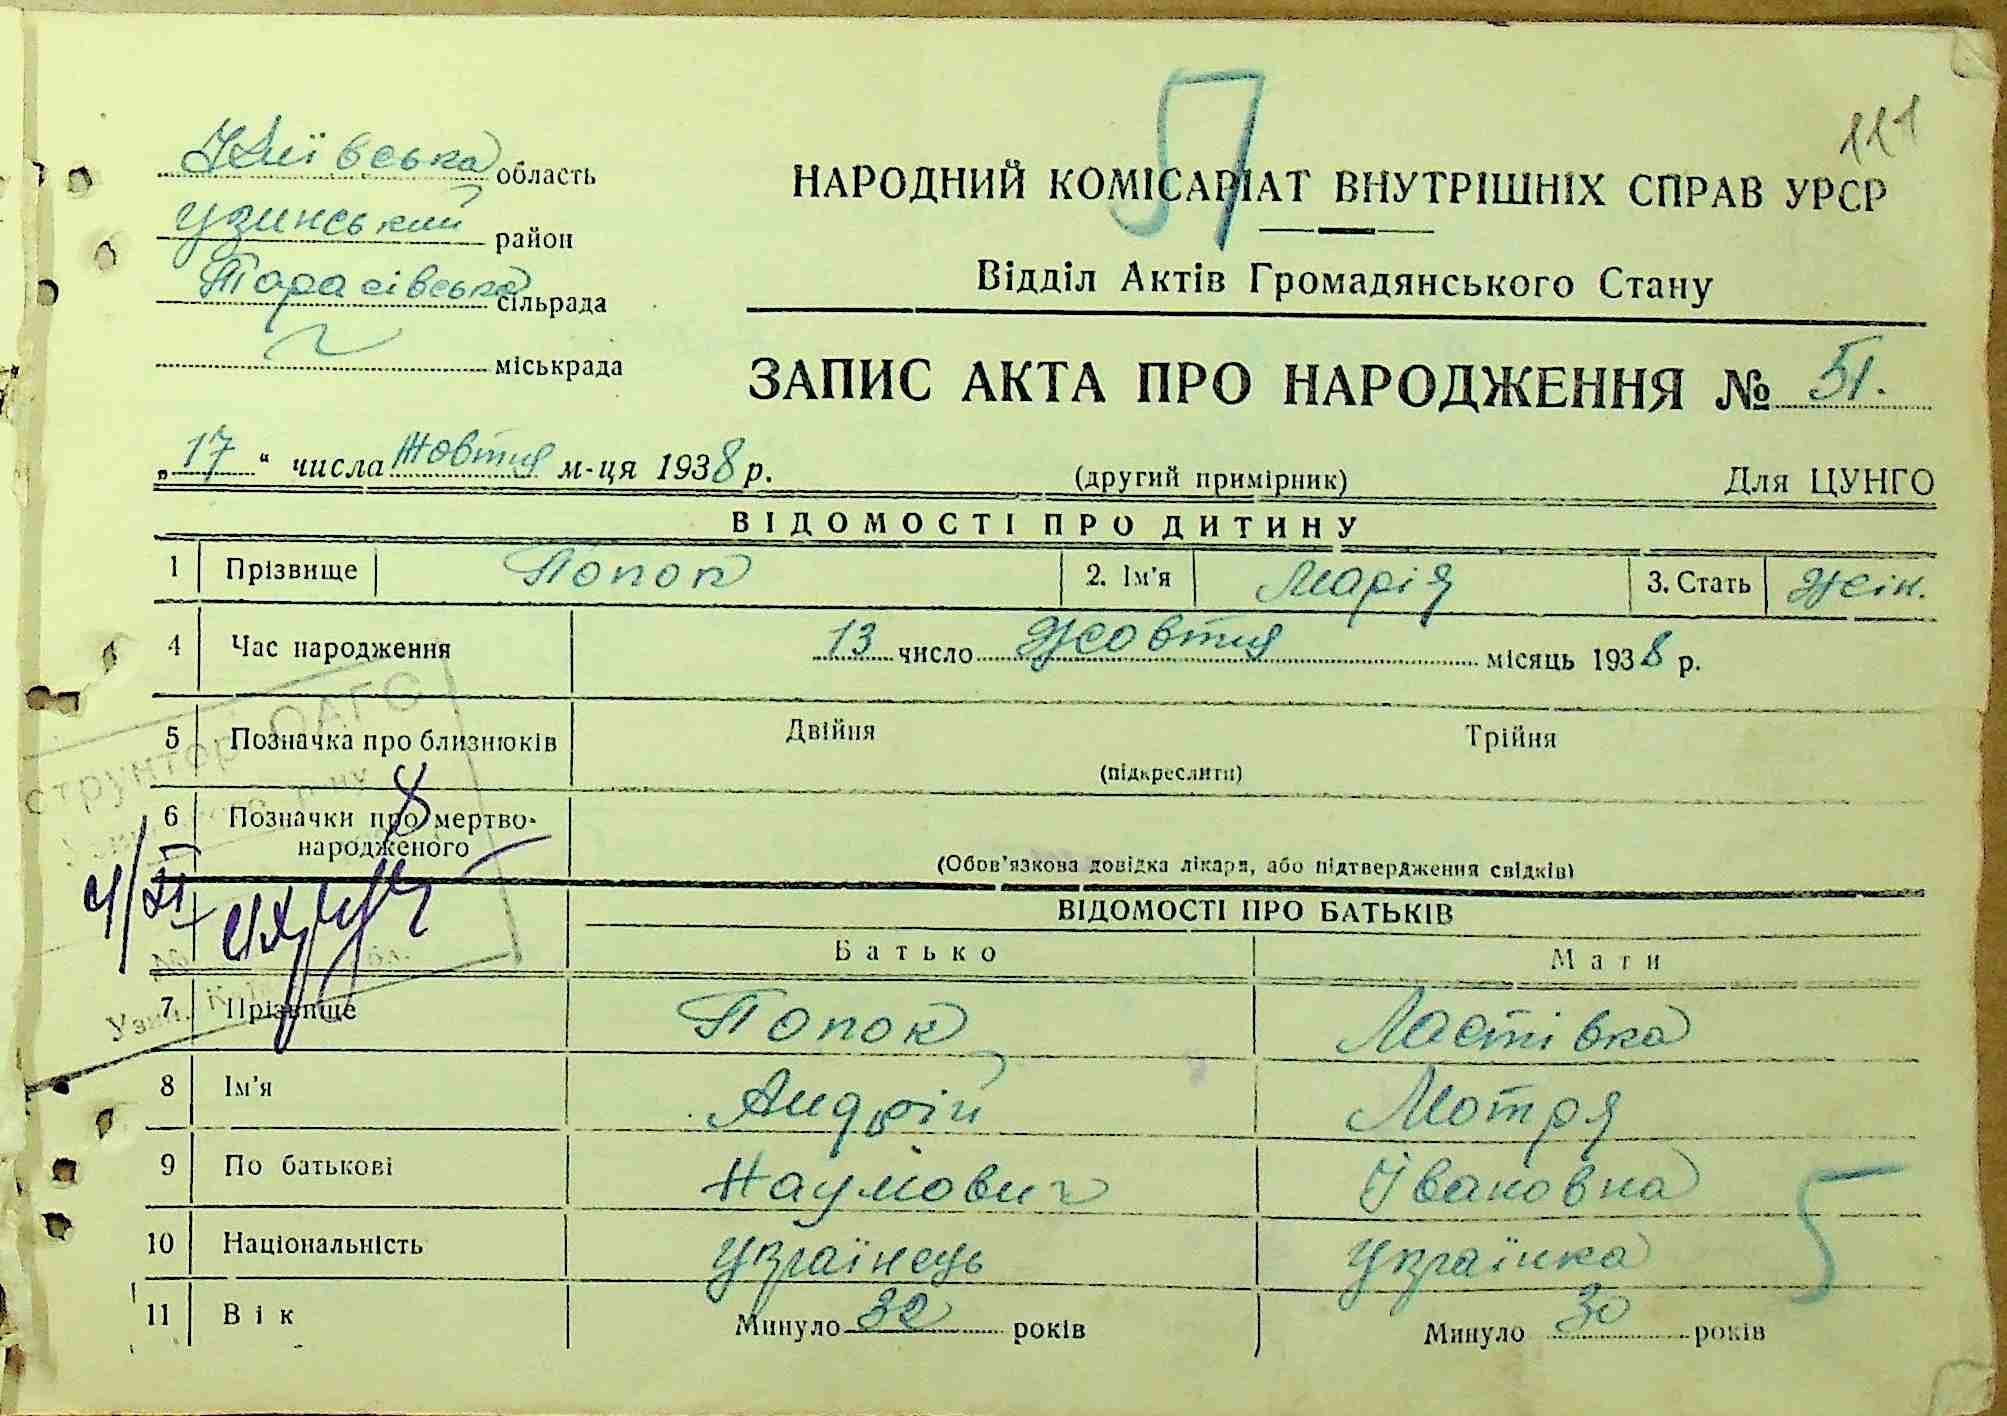 П
111
Київська область
Узинський район
Тарасівська сільрада
міськрада
НАРОДНИЙ КОМІСАРІАТ ВНУТРІШНІХ СПРАВ УРСР
Відділ Актів Громадянського Стану
ЗАПИС АКТА ПРО НАРОДЖЕННЯ № 51.
„17“ числа Жовтня м-ця 1938 р.
(другий примірник)
Для ЦУНГО
ВІДОМОСТІ ПРО ДИТИНУ
1 Прізвище Попок 2. Ім'я Марія 3. Стать жін.
4 Час народження 13 число Жовтня місяць 1938 р.
5 Позначка про близнюків Двійня Трійня
(підкреслити)
6 Позначки про мертво-
народженого
(Обов'язкова довідка лікаря, або підтвердження свідків)
ВІДОМОСТІ ПРО БАТЬКІВ
Батько Мати
7 Прізвище Попок Ластівка
8 Ім'я Андрій Мотря
9 По батькові Наумович Івановна
10 Національність Українець Українка
5
11 Вік Минуло 32 років Минуло 30 років